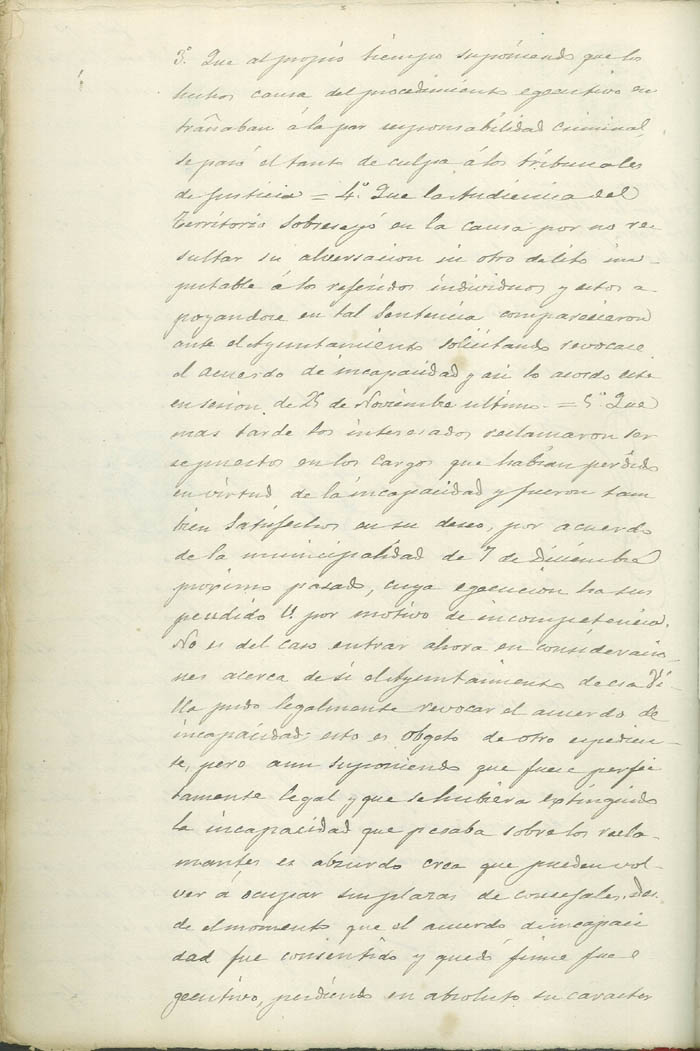 3º. Que al propio tiempo suponiendo que los
hechos causa del procedimiento egecutivo en
trañaban á la par responsabilidad criminal,
se pasó el tanto de culpa á los tribunales
de Justicia = 4º. Que la Audiencia del
Territorio sobreseyó en la causa por no re-
sultar su alversacion ni otro delito im-
putable á los referidos individuos y estos a-
poyandose en tal Sentencia comparecieron
ante el Ayuntamiento solicitando revocase
el acuerdo de incapacidad y asi lo acordo este
en sesion de 25 de Noviembre ultimo. = 5º. Que
mas tarde los interesados reclamaron ser
repuestos en los cargos que habian perdido
en virtud de la incapacidad y fueron tam
bien satisfechos en su deseo, por acuerdo
de la municipalidad de 7 de Diciembre
proximo pasado, cuya egecucion ha sus
pendido V. por motivo de incompetencia.
No es del caso entrar ahora en consideracio-
nes acerca de si el Ayuntamiento de esa Vi-
lla pudo legalmente revocar el acuerdo de
incapacidad; esto es obgeto de otro espedien-
te, pero aun suponiendo que fuese perfec
tamente legal y que se hubiera extinguido
la incapacidad que pesaba sobre los recla-
mantes es absurdo crea que pueden vol-
ver á ocupar sus plazas de concejales. Des-
de el momento que el acuerdo de incapaci
dad fue consentido y quedó firme fue e
gecutivo, perdiendo en absoluto su caracter